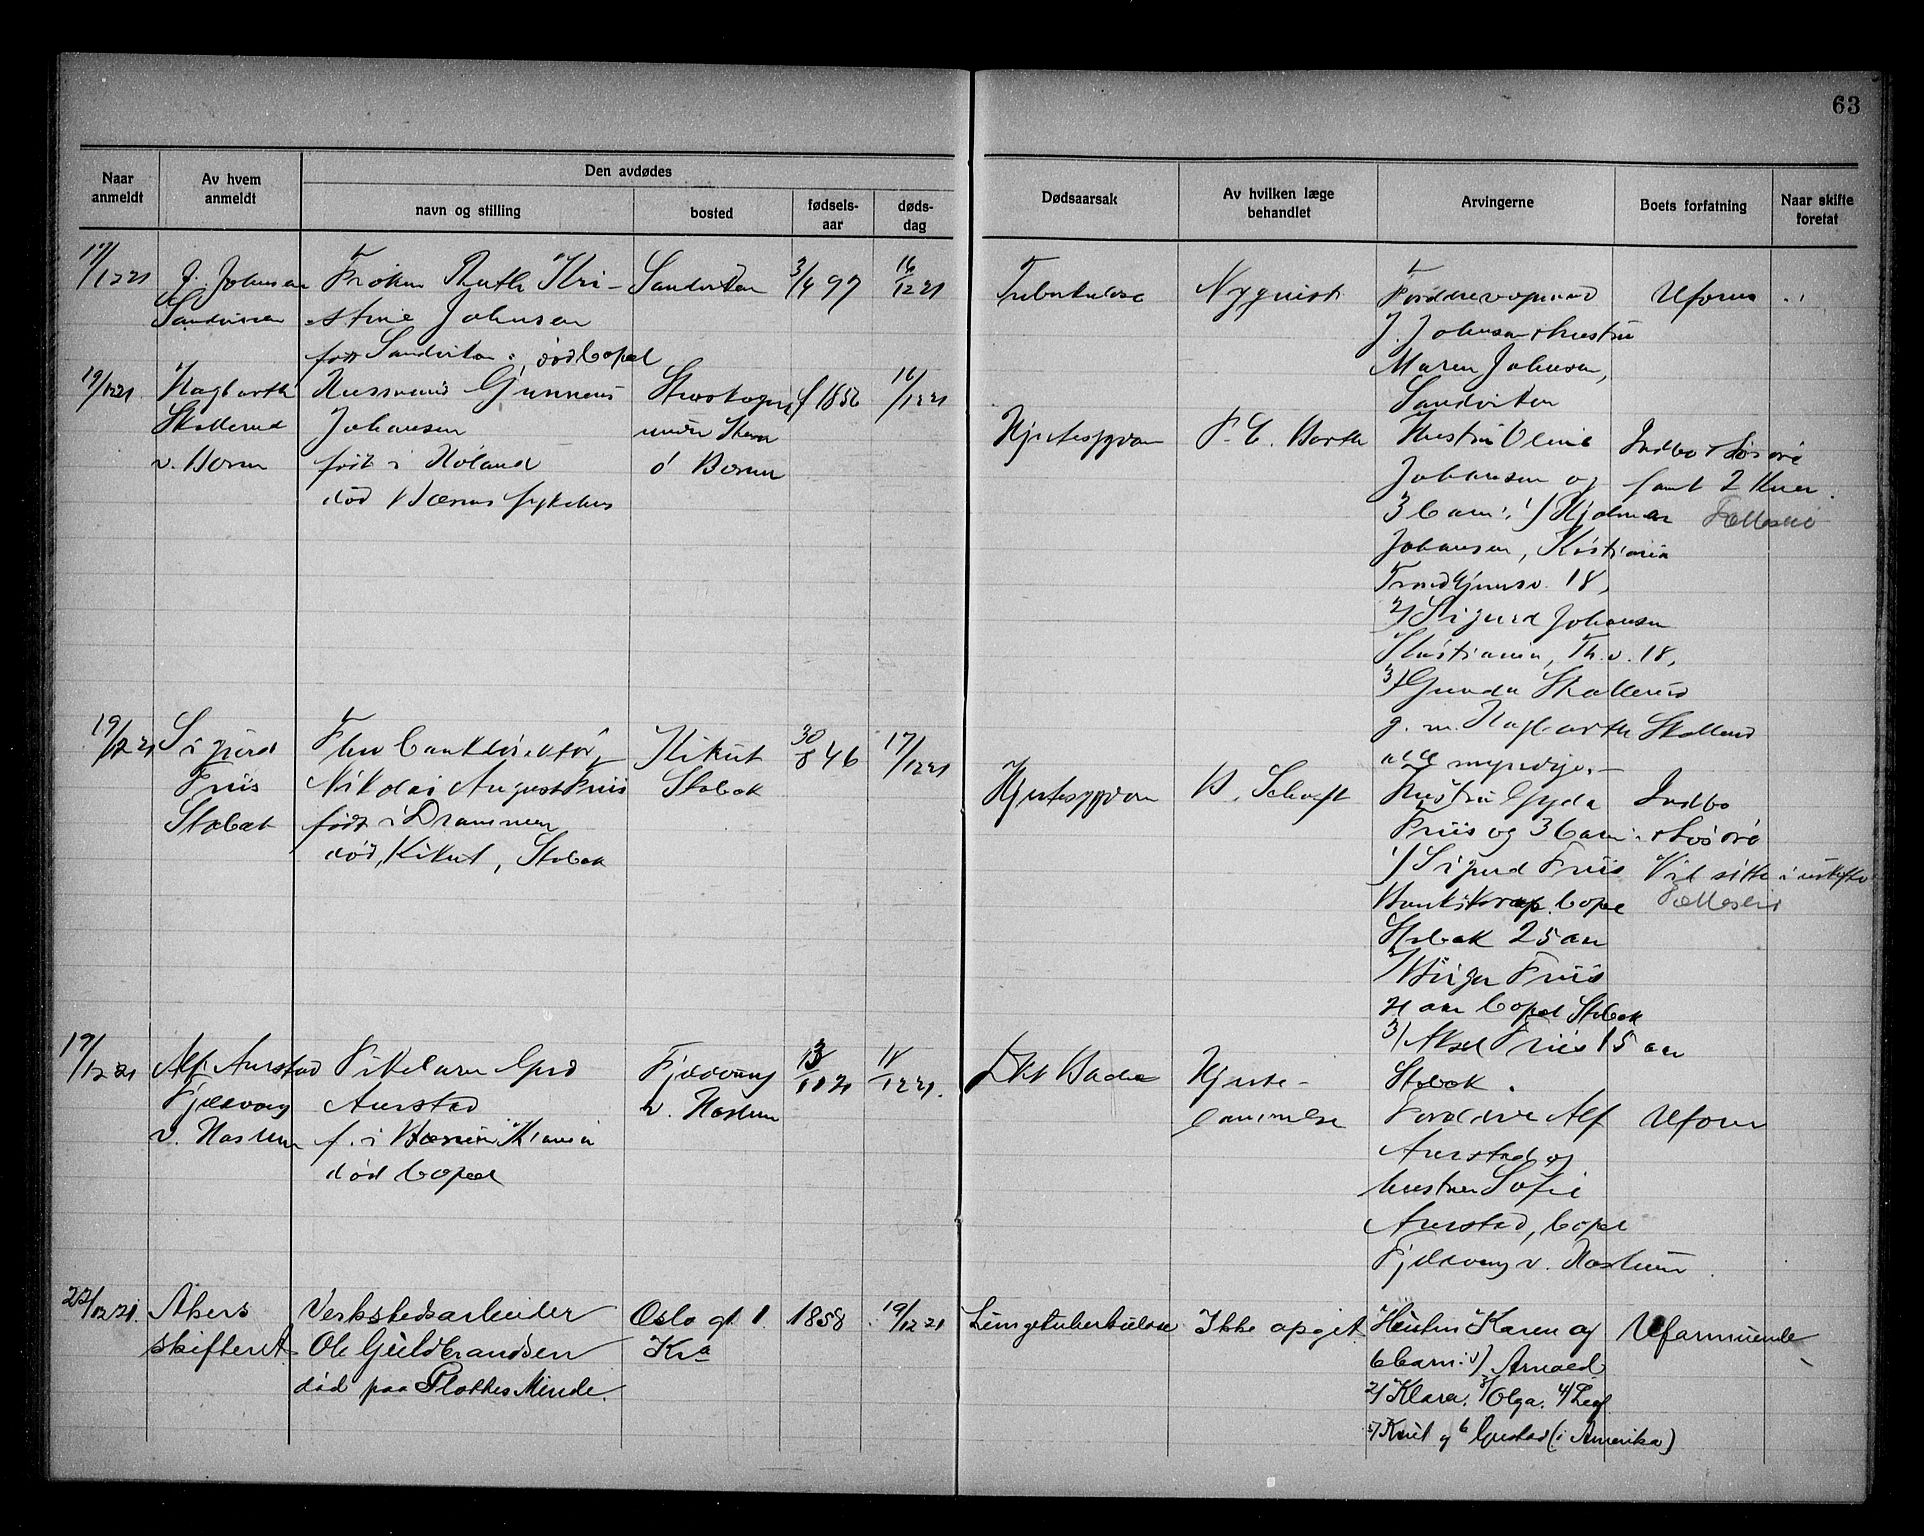 63
Naar anmeldt
Av hvem anmeldt
Den avdødes
navn og stilling
bosted
fødsels-aar
døds-dag
Dødsaarsak
Av hvilken læge behandlet
Arvingerne
Boets forfatning
Naar skifte foretat
17/12 21
J. Johnsen
Sandviken
Frøken Ruth Kri-
stine Johnsen
født Sandviken, død bopæl
Sandviken
3/4 97
16/12 21
Tuberkulose
Nyquist
Forældre
J. Johnsen & hustru
Maren Johnsen,
Sandviken
Uformu
19/12 21
Hagbarth
Skollerud
v. Bærum
Husmand Gunnerius
Johansen
født i Høland
død Bærums sykehus
under
i Bærum
f 1850
16/12 21
Hjertesygdom
F. C. Barth
Hustru Oline
Johansen og
3 barn: 1/ Hjalmar
Johansen, Kristiania
Trondhjemsv. 18,
2/ Sigurd Johansen
Kristiania, Th.v. 18,
3/ Gunda Skollerud
g. m. Hagbarth Skollerud
alle myndige.
Indbo & løsøre
samt 2 kuer.
Fælleseie
19/12 21
Sigurd
Friis
Stabæk
Fhv bankdirektør
Nikolai August Friis
født i Drammen
død, Kikut, Stabæk
Kikut
Stabæk
30/8 46
17/12 21
Hjertesygdom
Hustru Gyda
Friis og 3 barn:
1/ Sigurd Friis
bopæl
Stabæk 25 aar
2/ Birger Friis
21 aar bopæl Stabæk
3/ Aksel Friis 15 aar
Stabæk.
Indbo
& løsøre
Vil sitte i uskiftet
Fælleseie
19/12 21
Alf Aurstad
Fjeldvang
v. Haslum
Pikebarn Gerd
Aurstad
f. i Bærum Kiania
død bopæl
Fjeldvang
v. Haslum
13/10 21
18/12 21.
Hjerte-
lammelse
Forældre Alf
Aurstad og
hustru Sofie
Aurstad, bopæl
Fjeldvang v. Haslum.
Uformu
22/12 21.
Akers
skifteret
Verkstedsarbeider
Ole Guldbrandsen
død paa Plottes Minde.
Oslo gt 1
Kra
1858
19/12 21
Lungetuberkulose
Ikke opgit
Hustru Karen og
6 barn: 1/ Arnold
2/ Klara. 3/ Olga. 4/ Leif
5/ Karl og 6 Gustav (i Amerika)
Uformuende